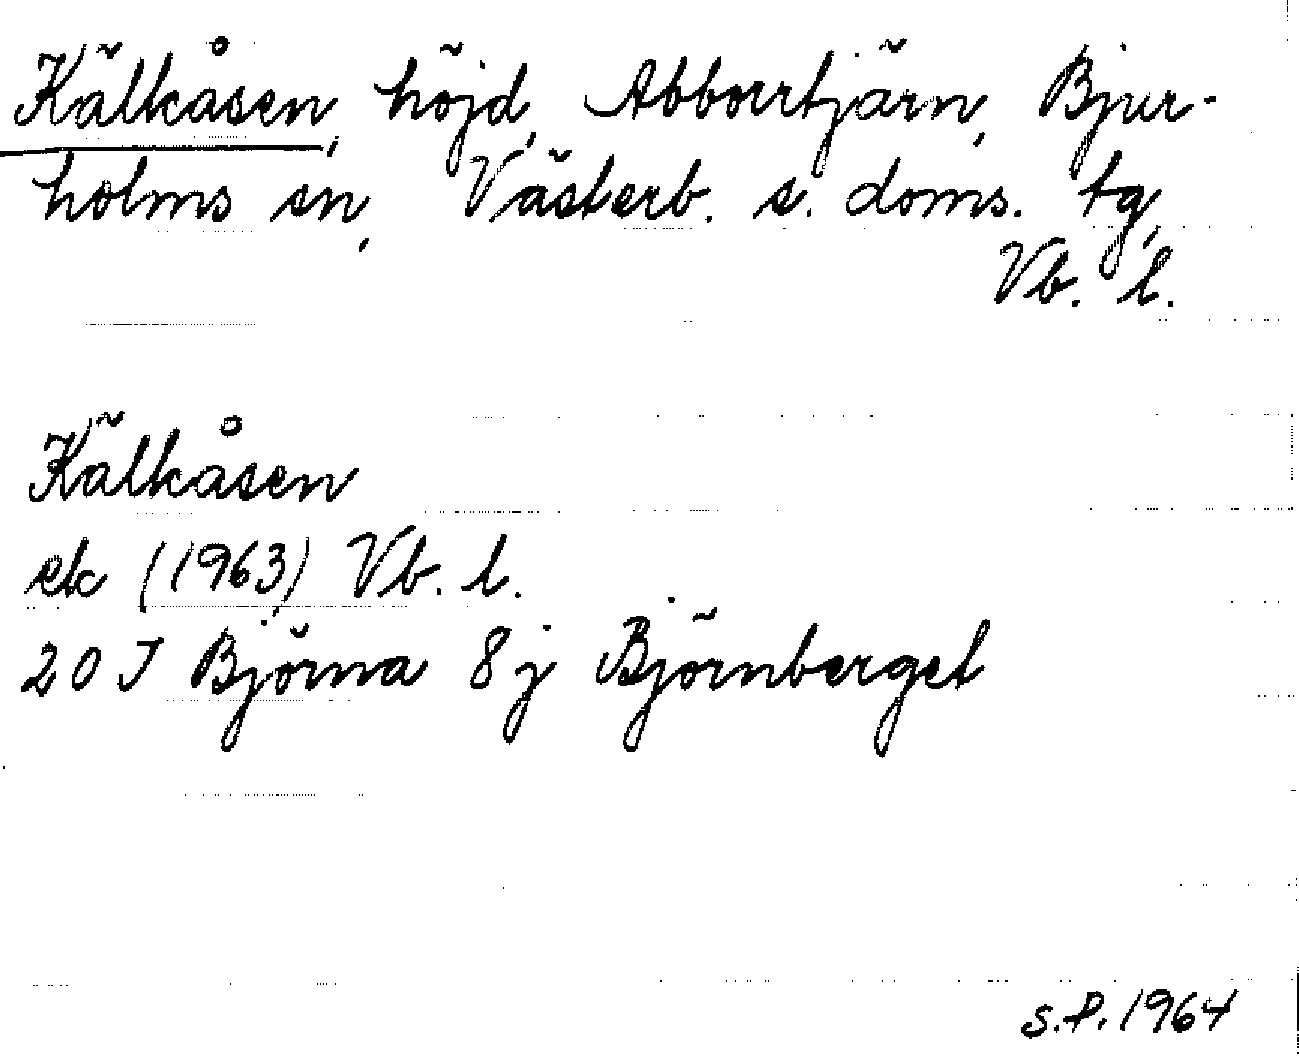 Kälkåsen, höjd, Abborrtjärn, Bjur-
holms sn, Västerb. s. doms. tg,
Vb. l.
Kälkåsen
ek (1963) Vb. l.
20 J Björna 8 j Björnberget
s.P. 1964